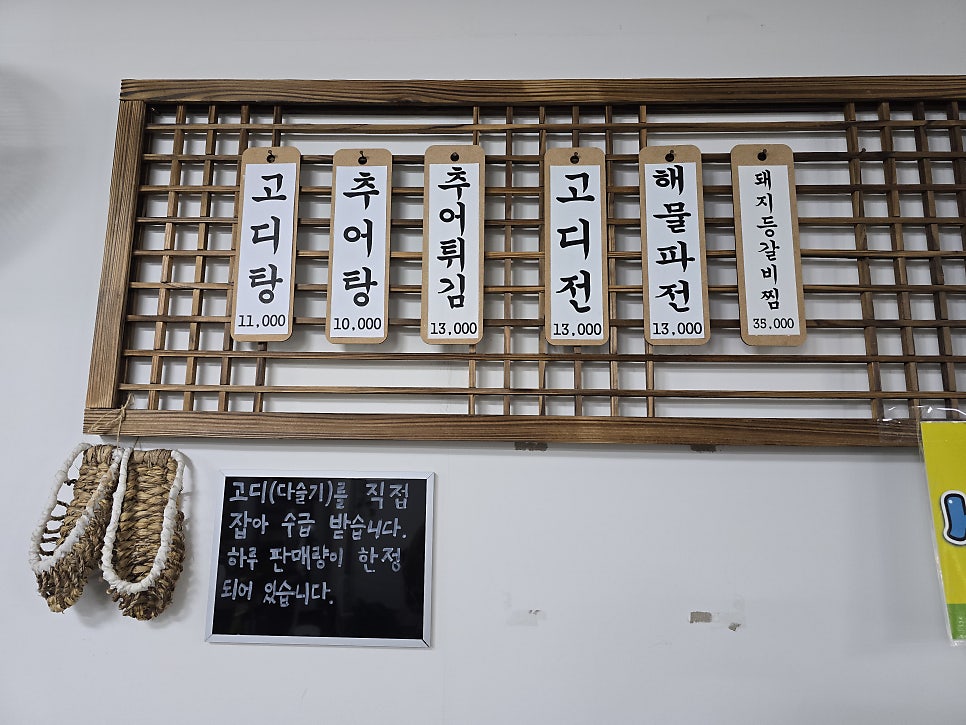 고디탕
11,000
추어탕
10,000
추어튀김
13,000
고디전
13,000
해물파전
13,000
돼지등갈비찜
35,000
고디(다슬기)를 직접
잡아 수급 받습니다.
하루 판매량이 한정
되어 있습니다.